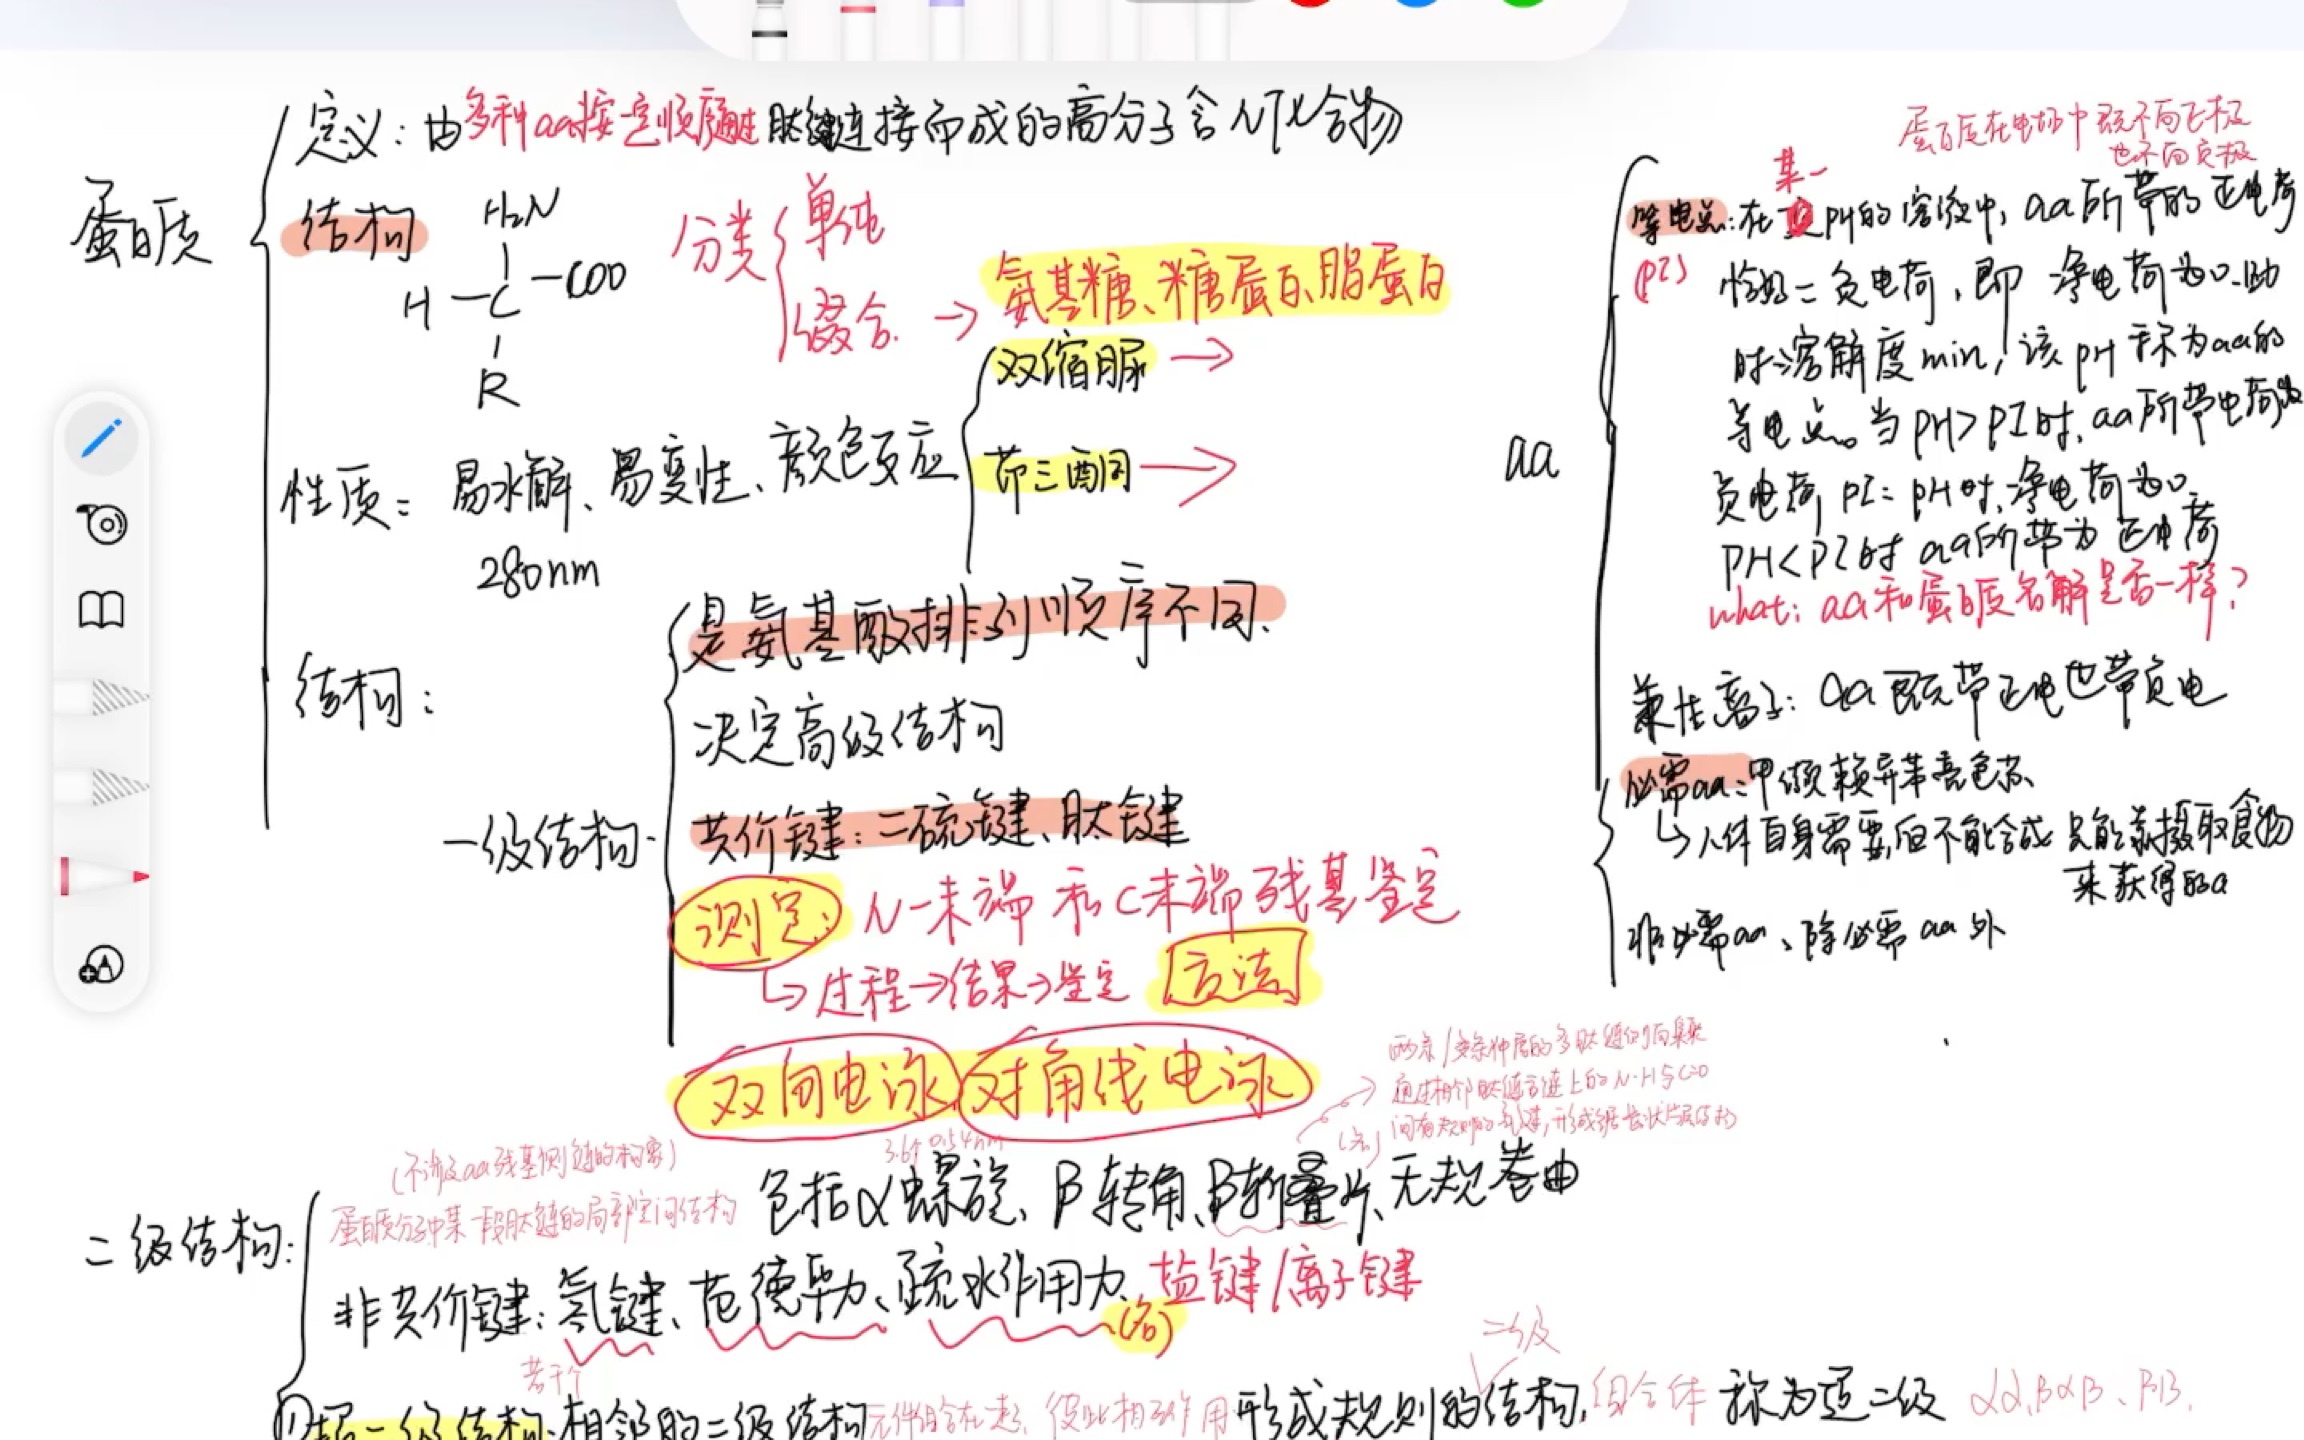 蛋白质
定义：由多种aa按一定顺序通过肽键连接而成的高分子含N化合物
结构
H₂N
H－C－COO
R
分类
单纯
缀合→氨基糖、糖蛋白、脂蛋白
性质：易水解、易变性、颜色反应
双缩脲→
茚三酮→
280nm
结构：
一级结构
是氨基酸排列顺序不同.
决定高级结构
共价键：二硫键、肽键
测定：N-末端和C末端残基鉴定
↳过程→结果→鉴定 方法
双向电泳 对角线电泳
3.6个 0.54nm
两条/多条伸展的多肽链侧向集聚
通过相邻肽链主链上的N-H与C=O
间有规则的氢键,形成锯齿状片层结构
(名)
(不涉及aa残基侧链的构象)
蛋白质分子中某一段肽链的局部空间结构
二级结构：
包括α螺旋、β转角、β折叠片、无规卷曲
非共价键：氢键、范德华力、疏水作用力、盐键/离子键
(名)
若干个
二级
①超二级结构：相邻的二级结构元件组合在一起，彼此相互作用形成规则的结构,组合体称为超二级 αα、βαβ、ββ.
aa
蛋白质在电场中既不向正极
也不向负极
某一
等电点：在pH的溶液中，aa所带的正电荷
(pI)
恰好=负电荷，即净电荷为0.此
时溶解度min，该pH称为aa的
等电点。当pH>pI时，aa所带电荷为
负电荷 pI=pH时,净电荷为0
PH<PI时 aa所带为正电荷
what：aa和蛋白质名解是否一样？
兼性离子：aa既带正电也带负电
必需aa：甲缬赖异苯亮色苏
↳人体自身需要,但不能合成 只能靠摄取食物
来获得的a
非必需aa、除必需aa外